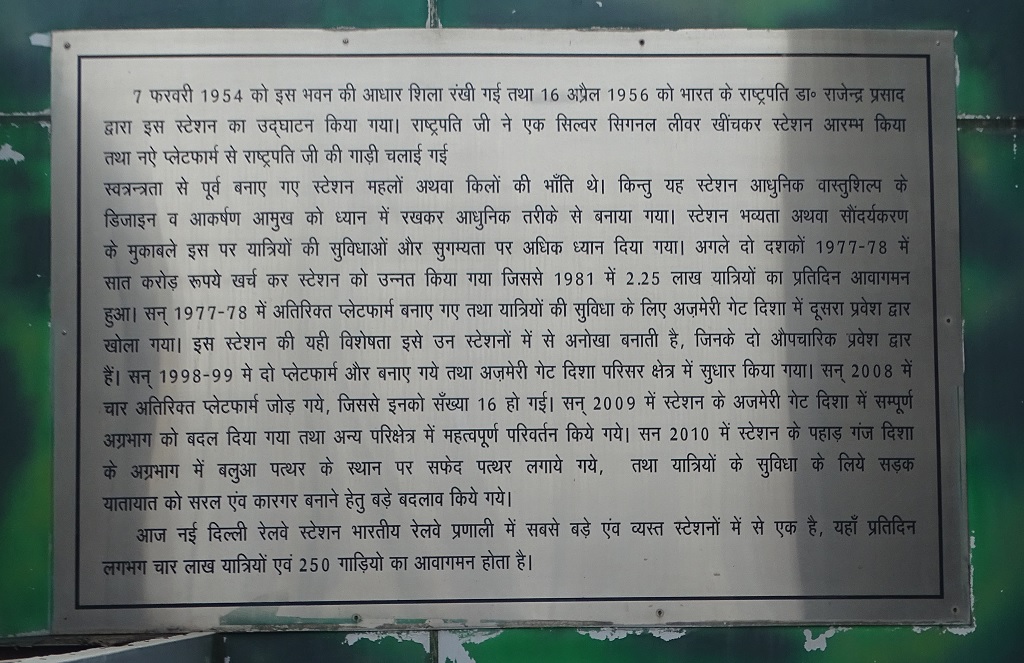 7 फरवरी 1954 को इस भवन की आधार शिला रंखी गई तथा 16 अप्रैल 1956 को भारत के राष्ट्रपति डा॰ राजेन्द्र प्रसाद
द्वारा इस स्टेशन का उद्घाटन किया गया। राष्ट्रपति जी ने एक सिल्वर सिगनल लीवर खींचकर स्टेशन आरम्भ किया
तथा नऐ प्लेटफार्म से राष्ट्रपति जी की गाड़ी चलाई गई
स्वत्रन्त्रता से पूर्व बनाए गए स्टेशन महलों अथवा किलों की भाँति थे। किन्तु यह स्टेशन आधुनिक वास्तुशिल्प के
डिजाइन व आकर्षण आमुख को ध्यान में रखकर आधुनिक तरीके से बनाया गया। स्टेशन भव्यता अथवा सौंदर्यकरण
के मुकाबले इस पर यात्रियों की सुविधाओं और सुगम्यता पर अधिक ध्यान दिया गया। अगले दो दशकों 1977-78 में
सात करोड़ रूपये खर्च कर स्टेशन को उन्नत किया गया जिससे 1981 में 2.25 लाख यात्रियों का प्रतिदिन आवागमन
हुआ। सन् 1977-78 में अतिरिक्त प्लेटफार्म बनाए गए तथा यात्रियों की सुविधा के लिए अज़मेरी गेट दिशा में दूसरा प्रवेश द्वार
खोला गया। इस स्टेशन की यही विशेषता इसे उन स्टेशनों में से अनोखा बनाती है, जिनके दो औपचारिक प्रवेश द्वार
हैं। सन् 1998-99 मे दो प्लेटफार्म और बनाए गये तथा अज़मेरी गेट दिशा परिसर क्षेत्र में सुधार किया गया। सन् 2008 में
चार अतिरिक्त प्लेटफार्म जोड़ गये, जिससे इनको सँख्या 16 हो गई। सन् 2009 में स्टेशन के अजमेरी गेट दिशा में सम्पूर्ण
अग्रभाग को बदल दिया गया तथा अन्य परिक्षेत्र में महत्वपूर्ण परिवर्तन किये गये। सन 2010 में स्टेशन के पहाड़ गंज दिशा
के अग्रभाग में बलुआ पत्थर के स्थान पर सफेद पत्थर लगाये गये, तथा यात्रियों के सुविधा के लिये सड़क
यातायात को सरल एंव कारगर बनाने हेतु बड़े बदलाव किये गये।
आज नई दिल्ली रेलवे स्टेशन भारतीय रेलवे प्रणाली में सबसे बड़े एंव व्यस्त स्टेशनों में से एक है, यहाँ प्रतिदिन
लगभग चार लाख यात्रियों एवं 250 गाड़ियो का आवागमन होता है।